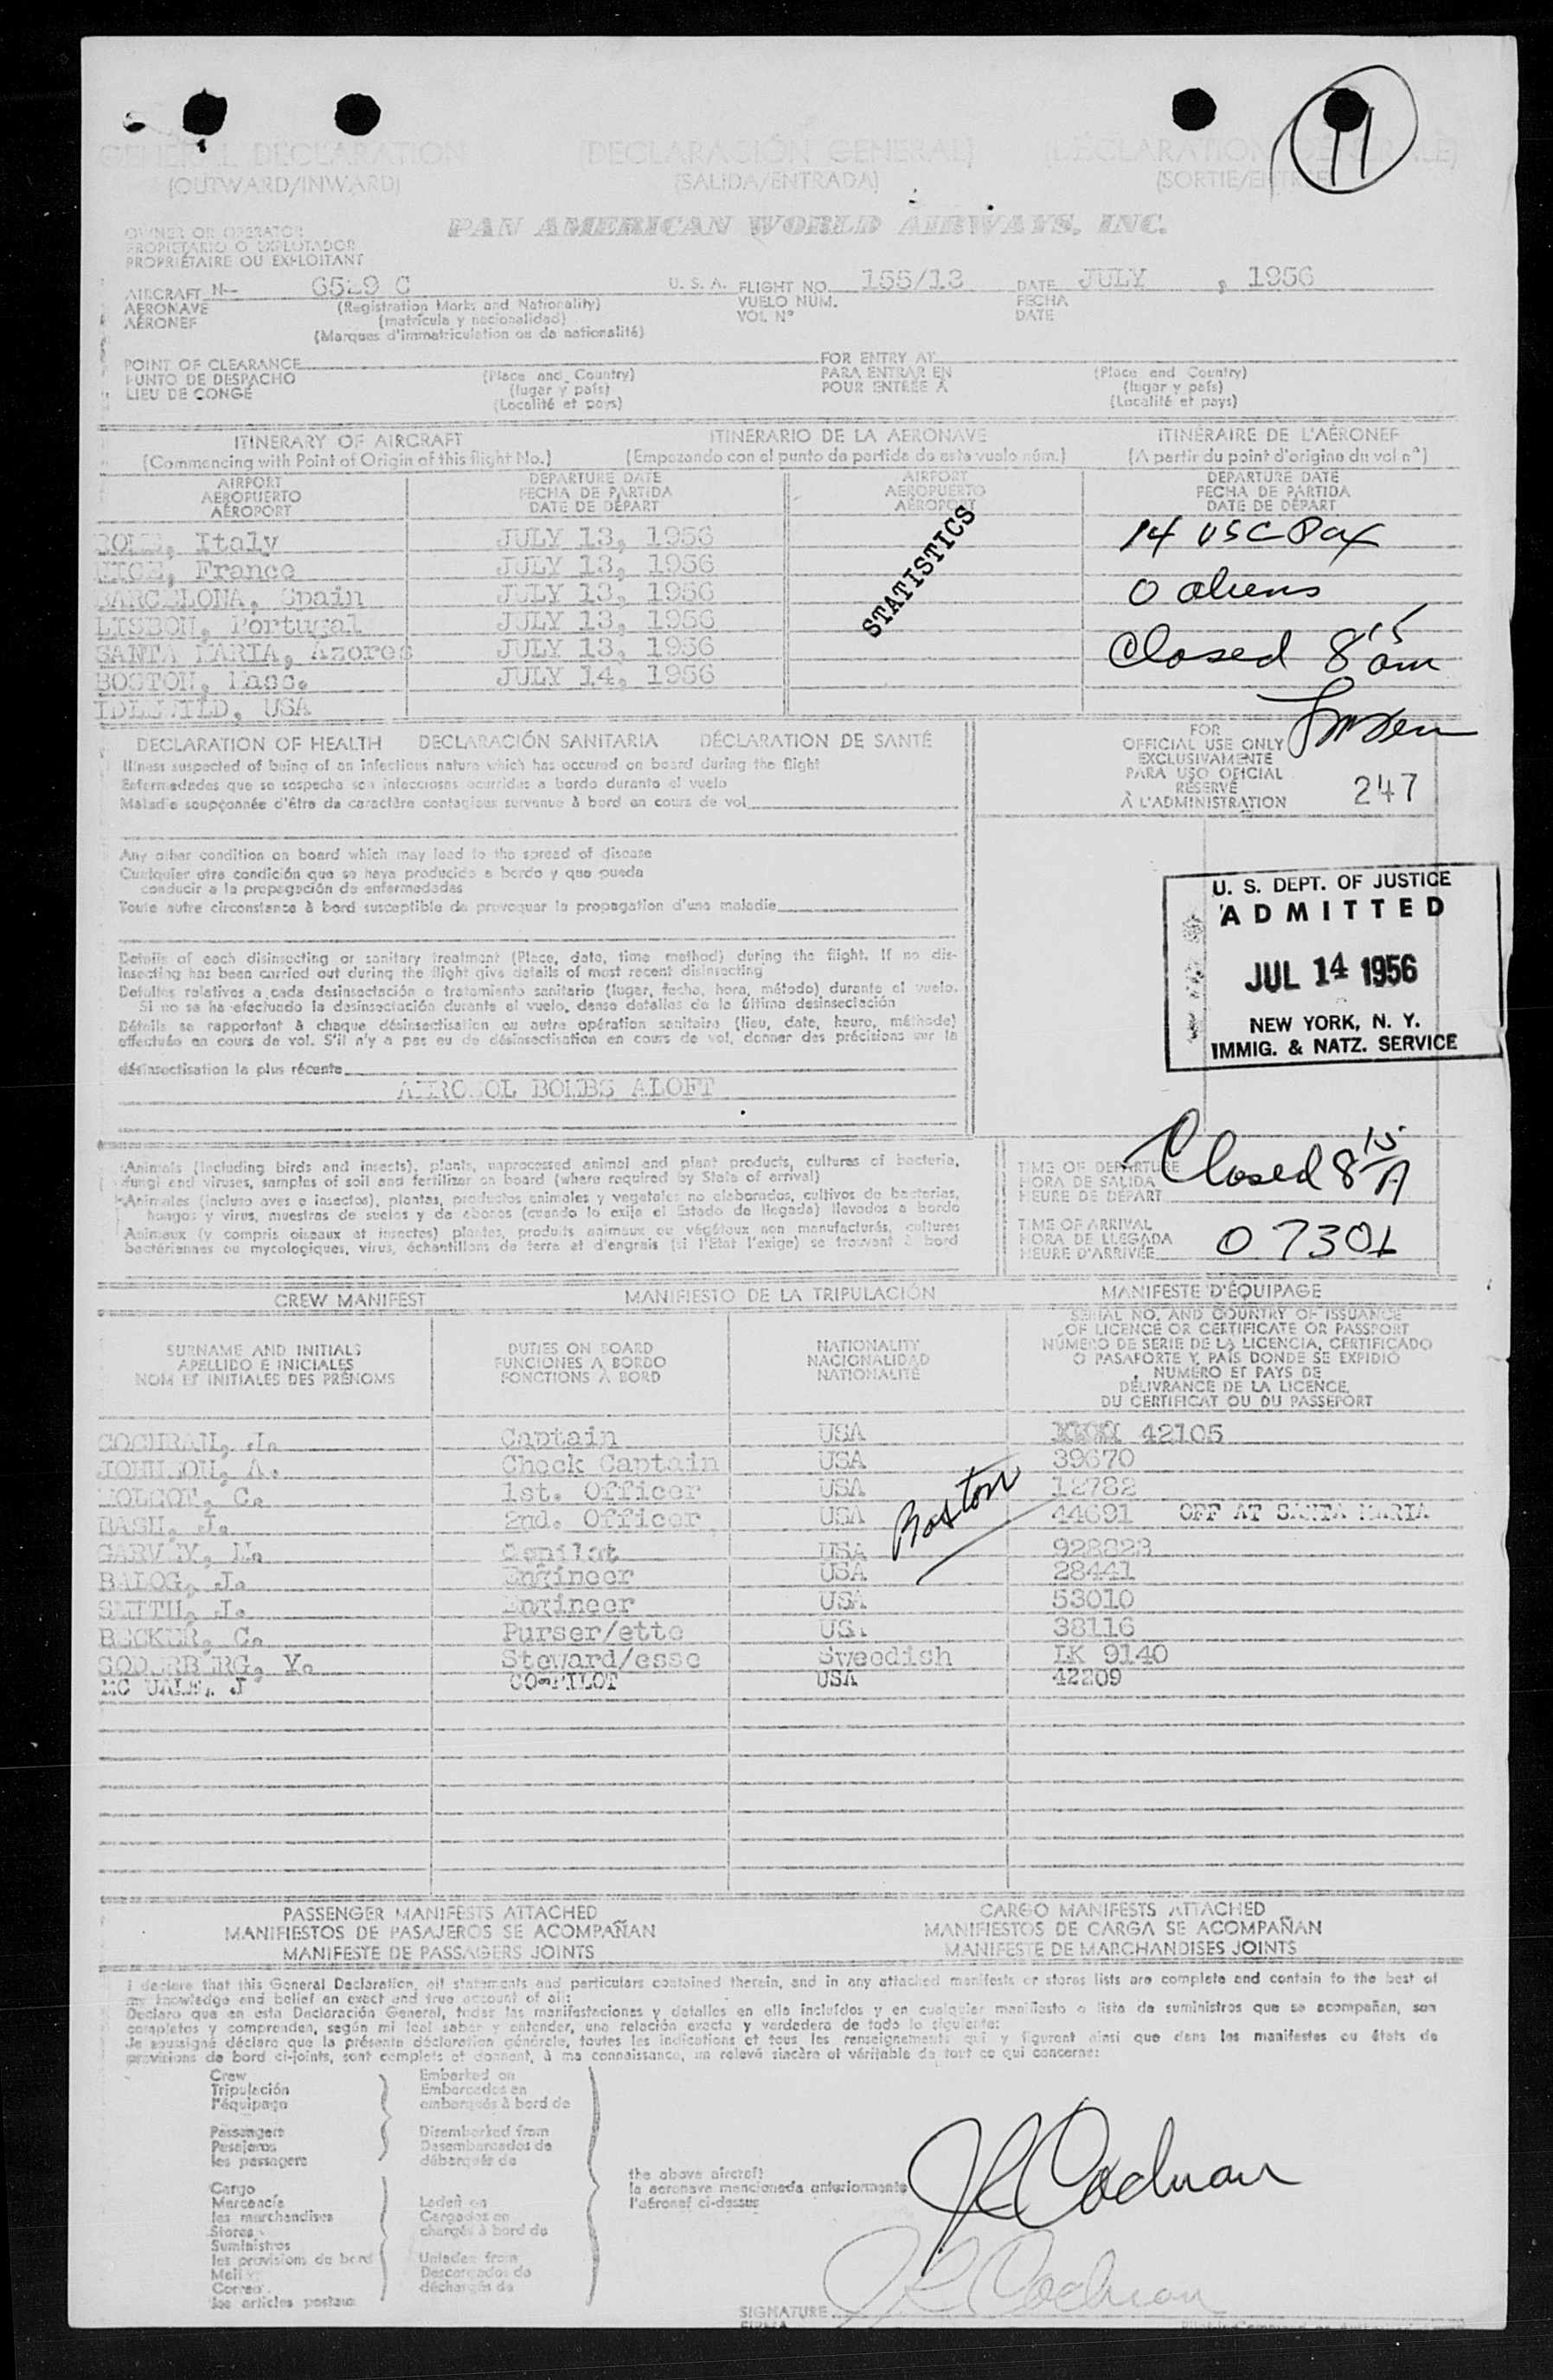 11
GENERAL DECLARATION (DECLARASIÓN GENERAL) (DÉCLARATION GÉNÉRALE)
(OUTWARD/INWARD) (SALIDA/ENTRADA) (SORTIE/ENTRÉE)
PAN AMERICAN WORLD AIRWAYS, INC.
OWNER OR OPERATOR
PROPIETARIO O EXPLOTADOR
PROPRIÉTAIRE OU EXPLOITANT
AIRCRAFT N- U. S. A. FLIGHT NO. 155/13 DATE JULY , 1956
AERONAVE (Registration Marks and Nationality) VUELO NÚM. FECHA
AÉRONEF (matrícula y nacionalidad) VOL Nº DATE
(Marques d'immatriculation ou de nationalité)
POINT OF CLEARANCE FOR ENTRY AT
PUNTO DE DESPACHO (Place and Country) PARA ENTRAR EN (Place and Country)
LIEU DE CONGÉ (lugar y país) POUR ENTRÉE À (lugar y país)
(Localité et pays) (Localité et pays)
ITINERARY OF AIRCRAFT ITINERARIO DE LA AERONAVE ITINÉRAIRE DE L'AÉRONEF
(Commencing with Point of Origin of this flight No.) (Empezando con el punto de partida de este vuelo núm.) (A partir du point d'origine du vol nº)
AIRPORT DEPARTURE DATE AIRPORT DEPARTURE DATE
AEROPUERTO FECHA DE PARTIDA AEROPUERTO FECHA DE PARTIDA
AÉROPORT DATE DE DÉPART AÉROPORT DATE DE DÉPART
ROME, Italy JULY 13, 1956 14 USC Pax
NICE, France JULY 13, 1956
BARCELONA, Spain JULY 13, 1956 0 aliens
LISBON, Portugal JULY 13, 1956
SANTA MARIA, Azores JULY 13, 1956 Closed 8 15 am
BOSTON, Mass. JULY 14, 1956
IDLEWILD, USA
STATISTICS
DECLARATION OF HEALTH DECLARACIÓN SANITARIA DÉCLARATION DE SANTÉ
Illness suspected of being of an infectious nature which has occured on board during the flight
Enfermedades que se sospecha son infecciosas ocurridas a bordo durante el vuelo
Maladie soupçonnée d'être de caractère contagieux survenue à bord en cours de vol
FOR
OFFICIAL USE ONLY
EXCLUSIVAMENTE
PARA USO OFICIAL
RÉSERVÉ
À L'ADMINISTRATION
247
Any other condition on board which may lead to the spread of disease
Cualquier otra condición que se haya producido a bordo y que pueda
conducir a la propagación de enfermedades
Toute autre circonstance à bord susceptible de provoquer la propagation d'une maladie
U. S. DEPT. OF JUSTICE
ADMITTED
JUL 14 1956
NEW YORK, N. Y.
IMMIG. & NATZ. SERVICE
Details of each disinsecting or sanitary treatment (Place, date, time method) during the flight. If no dis-
insecting has been carried out during the flight give details of most recent disinsecting
Detalles relativos a cada desinsectación o tratamiento sanitario (lugar, fecha, hora, método) durante el vuelo.
Si no se ha efectuado la desinsectación durante el vuelo, dense detalles de la última desinsectación
Détails se rapportant à chaque désinsectisation ou autre opération sanitaire (lieu, date, heure, méthode)
effectuée en cours de vol. S'il n'y a pas eu de désinsectisation en cours de vol, donner des précisions sur la
désinsectisation la plus récente
AEROSOL BOMBS ALOFT
Animals (including birds and insects), plants, unprocessed animal and plant products, cultures of bacteria,
fungi and viruses, samples of soil and fertilizer on board (where required by State of arrival)
Animales (incluso aves e insectos), plantas, productos animales y vegetales no elaborados, cultivos de bacterias,
hongos y virus, muestras de suelos y de abonos (cuando lo exija el Estado de llegada) llevados a bordo
Animaux (y compris oiseaux et insectes) plantes, produits animaux ou végétaux non manufacturés, cultures
bactériennes ou mycologiques, virus, échantillons de terre et d'engrais (si l'État l'exige) se trouvant à bord
TIME OF DEPARTURE
HORA DE SALIDA
HEURE DE DÉPART
Closed 8 15 A
TIME OF ARRIVAL
HORA DE LLEGADA
HEURE D'ARRIVÉE
0730L
CREW MANIFEST MANIFIESTO DE LA TRIPULACIÓN MANIFESTE D'ÉQUIPAGE
SURNAME AND INITIALS
APELLIDO E INICIALES
NOM ET INITIALES DES PRÉNOMS
DUTIES ON BOARD
FUNCIONES A BORDO
FONCTIONS À BORD
NATIONALITY
NACIONALIDAD
NATIONALITÉ
SERIAL NO. AND COUNTRY OF ISSUANCE
OF LICENCE OR CERTIFICATE OR PASSPORT
NÚMERO DE SERIE DE LA LICENCIA, CERTIFICADO
O PASAPORTE Y PAÍS DONDE SE EXPIDIÓ
NUMÉRO ET PAYS DE
DÉLIVRANCE DE LA LICENCE,
DU CERTIFICAT OU DU PASSEPORT
COCHRAN, J. Captain USA 42105
JOHNSON, A. Check Captain USA 39670
C. 1st. Officer USA 12782
BASH, J. 2nd. Officer USA 44691 OFF AT SANTA MARIA
GARVEY, Copilot USA 928823
BALOG, J. Engineer USA 28441
SMITH, J. Engineer USA 53010
BECKER, C. Purser/ette USA 38116
SODERBERG, Y. Steward/esse Swedish LK 9140
J CO-PILOT USA 42209
Boston
PASSENGER MANIFESTS ATTACHED CARGO MANIFESTS ATTACHED
MANIFIESTOS DE PASAJEROS SE ACOMPAÑAN MANIFIESTOS DE CARGA SE ACOMPAÑAN
MANIFESTE DE PASSAGERS JOINTS MANIFESTE DE MARCHANDISES JOINTS
I declare that this General Declaration, all statements and particulars contained therein, and in any attached manifests or stores lists are complete and contain to the best of
my knowledge and belief an exact and true account of all:
Declaro que en esta Declaración General, todas las manifestaciones y detalles en ella incluídos y en cualquier manifiesto o lista de suministros que se acompañan, son
completos y comprenden, según mi leal saber y entender, una relación exacta y verdadera de todo lo siguiente:
Je soussigné déclare que la présente déclaration générale, toutes les indications et tous les renseignements qui y figurent ainsi que dans les manifestes ou états de
provisions de bord ci-joints, sont complets et donnent, à ma connaissance, un relevé sincère et véritable de tout ce qui concerne:
Crew Embarked on
Tripulación Embarcados en
l'équipage embarqués à bord de
Passengers Disembarked from
Pasajeros Desembarcados de
les passagers débarqués de
Cargo
Mercancía Laden on
les marchandises Cargados en
Stores chargés à bord de
Suministros
les provisions de bord Unladen from
Mail Descargados de
Correo déchargés de
les articles postaux
the above aircraft
la aeronave mencionada anteriormente
l'aéronef ci-dessus
JR Cochran
JR Cochran
SIGNATURE
FIRMA